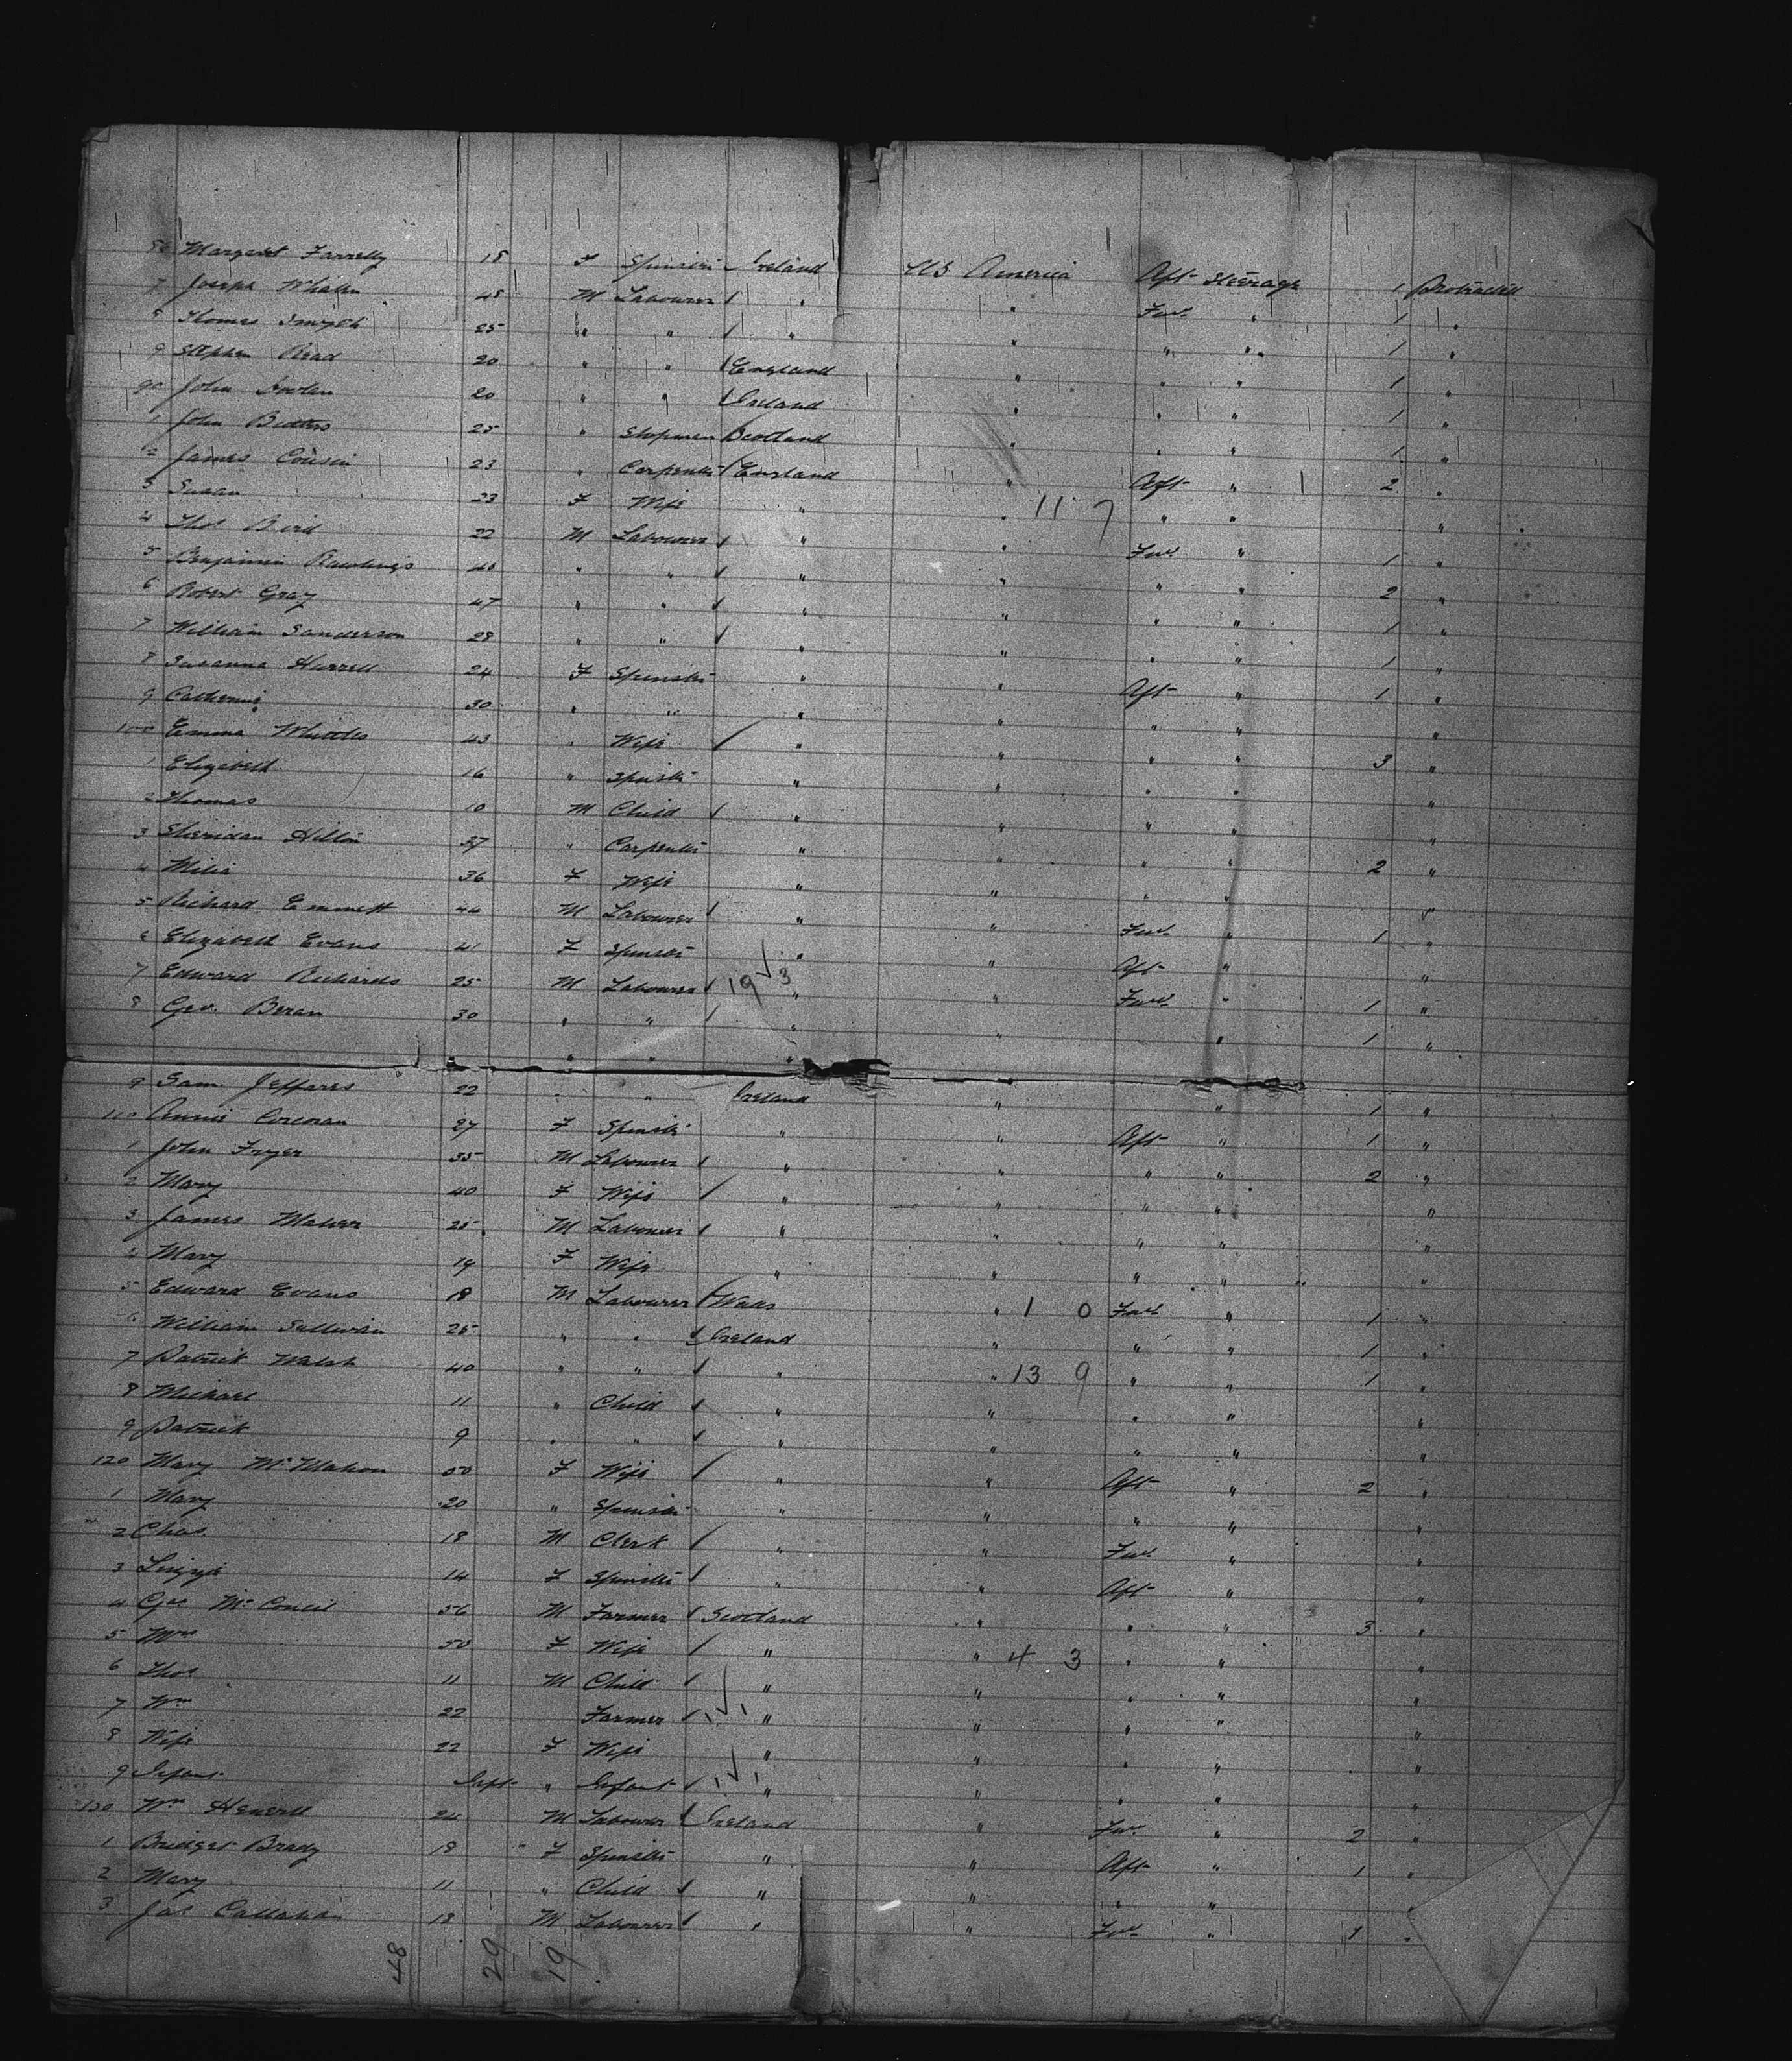 86 Margaret Farrelly 18 F Spinster Ireland U S America Aft Steerage 1 Protracted
7 Joseph Whalen 45 M Labourer " " Fwd " 1 "
8 Thomas Smyth 25 " " " " " " 1 "
9 Stephen Read 20 " " England " " " 1 "
90 John Nolan 20 " " Ireland " " " 1 "
1 John 25 " Shopman Scotland " " " 1 "
2 James Cousin 23 " Carpenter England " Aft " 2 "
3 Susan 23 F Wife " " 11 7 " " "
4 Thos Bird 22 M Labourer " " Fwd " 1 "
5 Benjamin Rawlings 40 " " " " " " 2 "
6 Robert Gray 47 " " " " " " 1 "
7 William Sanderson 28 " " " " " " 1 "
8 Susanna Hurrell 24 F Spinster " " Aft " 1 "
9 Catherine 30 " " " " " " "
100 Emma Whittles 43 " Wife " " " " 3 "
1 Elizabeth 16 " Spinster " " " " "
2 Thomas 10 M Child " " " " "
3 Sheridan Hilton 37 " Carpenter " " " " 2 "
4 36 F Wife " " " " "
5 Richard Emmett 44 M Labourer " " Fwd " 1 "
6 Elizabeth Evans 41 F Spinster " " Aft " "
7 Edward Richards 25 M Labourer 19 3 " " Fwd " 1 "
8 Geo. Beran 30 " " " " " 1 "
9 Sam. Jeffares 22 " " Ireland " " 1 "
110 Annie Corcoran 27 F Spinster " " Aft " 1 "
1 John Fryer 35 M Labourer " " " " 2 "
2 Mary 40 F Wife " " " " "
3 James Maher 25 M Labourer " " " " "
4 Mary 19 F Wife " " " " "
5 Edward Evans 18 M Labourer Wales " 1 0 Fwd " 1 "
6 William Sullivan 25 " " Ireland " " " 1 "
7 Patrick Walsh 40 " " " " 13 9 " " 1 "
8 Michael 11 " Child " " " " "
9 Patrick 9 " " " " " " "
120 Mary McMahon 50 F Wife " " Aft " 2 "
1 Mary 20 " Spinster " " " " "
2 Chas. 18 M Clerk " " Fwd " "
3 Lizzie 14 F Spinster " " Aft " "
4 Geo 56 M Farmer Scotland " " " 3 "
5 Mrs 50 F Wife " " 4 3 " " "
6 Thos 11 M Child " " " " "
7 Wm 22 Farmer " " " " "
8 Wife 22 F Wife " " " " "
9 Infant Inft " Infant " " " " "
130 Wm 24 M Labourer Ireland " Fwd " 2 "
1 Bridget Brady 18 F Spinster " " Aft " 1 "
2 Mary 11 " Child " " " " "
3 Jas Callahan 18 M Labourer " " Fwd " 1 "
48 29 19